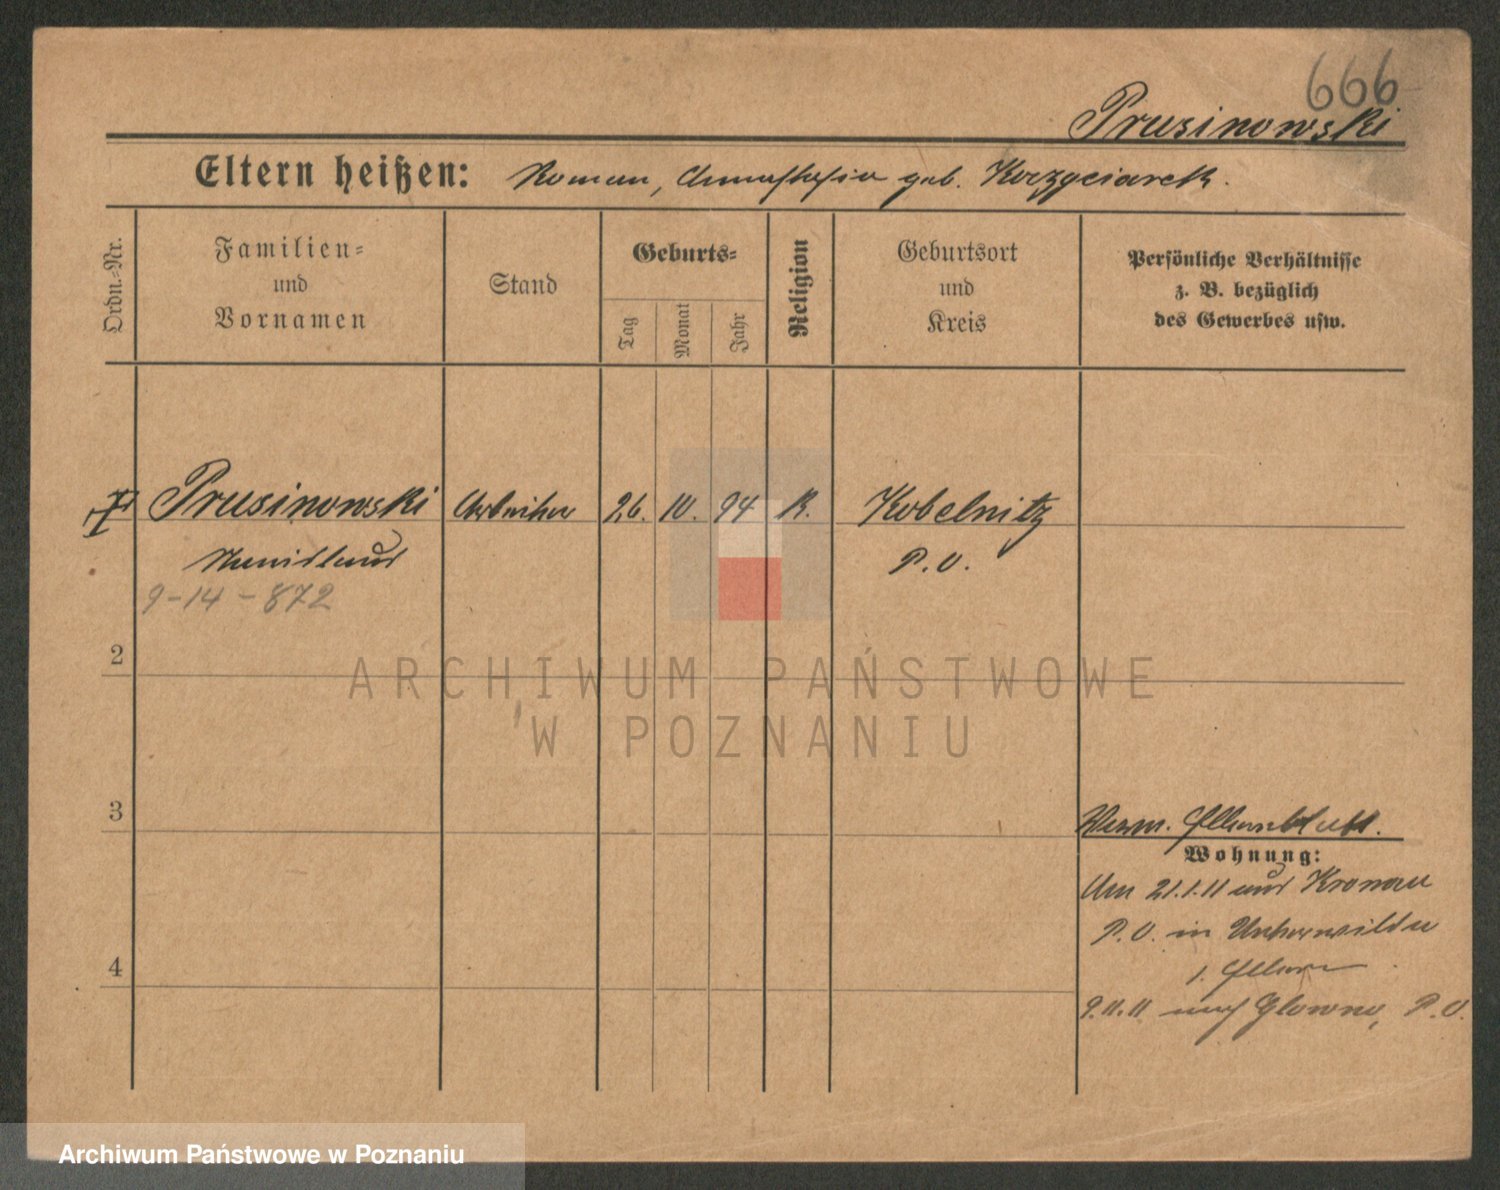 666
Prusinowski
Eltern heißen: Roman, Annastasia geb. Korzyciarek.
Ordn.-Nr.
Familien-
und
Vornamen
Stand
Geburts-
Tag
Monat
Jahr
Religion
Geburtsort
und
Kreis
Persönliche Verhältnisse
z. B. bezüglich
des Gewerbes usw.
Prusinowski Arbeiter 26. 10. 94 K. Kobelnitz
P. O.
9-14-872
2
ARCHIWUM PAŃSTWOWE
W POZNANIU
3
Verm. Elternblatt.
Wohnung:
Am 21.1.11 aus Kronau
P.O. in Unterwilda
z. Eltern
9.11.11 nach Glowno, P.O.
4
Archiwum Państwowe w Poznaniu